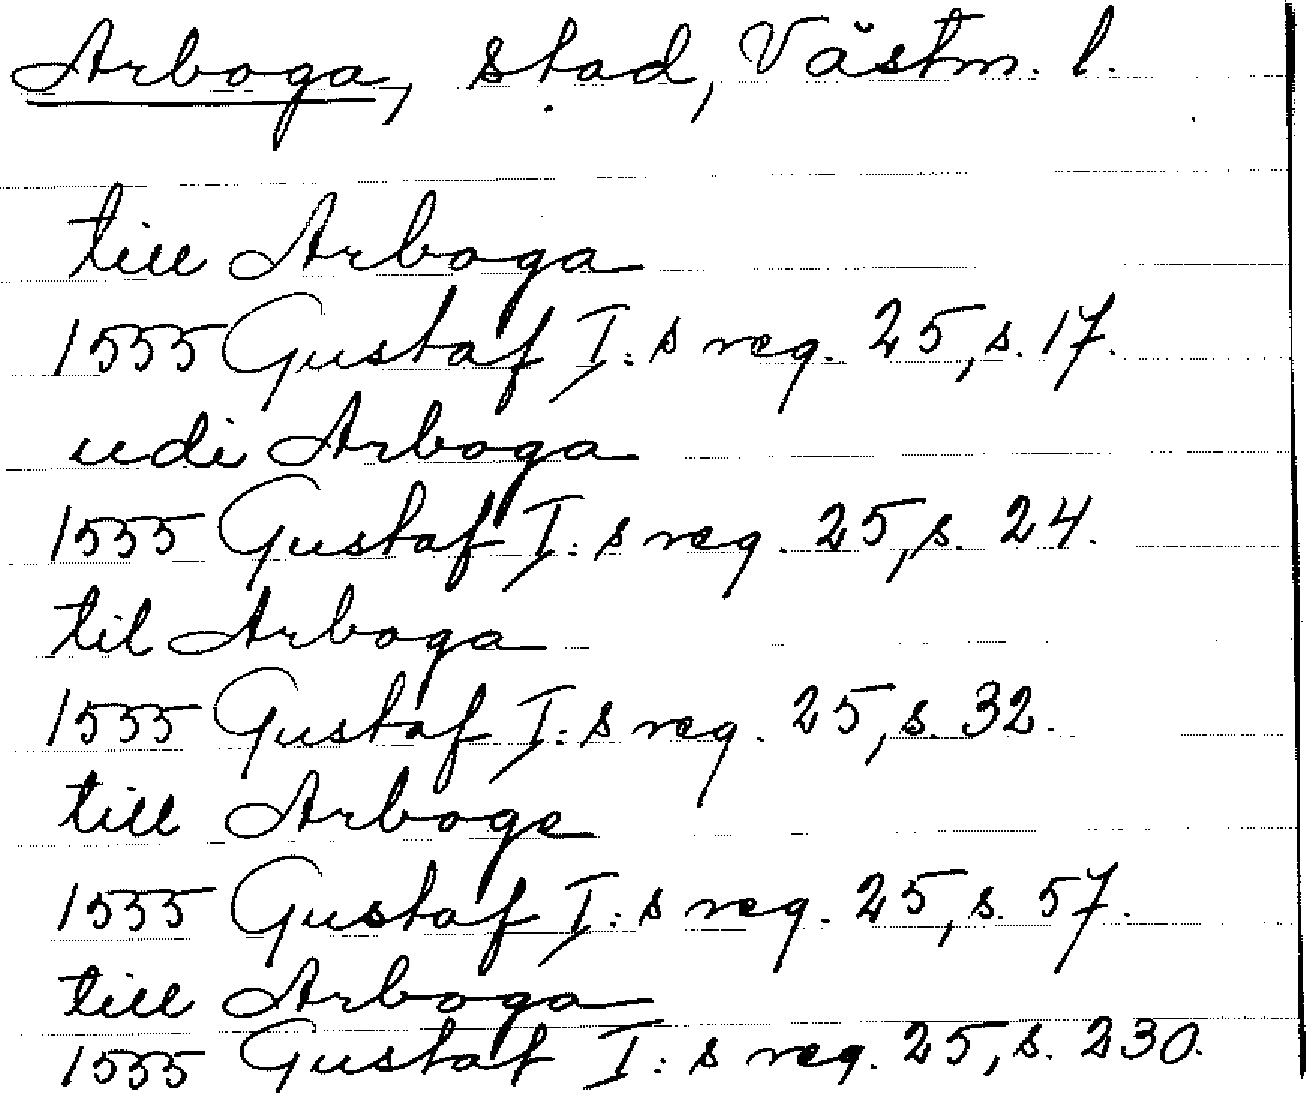 Arboga, stad, Västm. l.
till Arboga
1555 Gustaf I:s reg. 25, s. 17.
udi Arboga
1555 Gustaf I:s reg. 25, s. 24.
til Arboga
1555 Gustaf I:s reg. 25, s. 32.
till Arboga
1555 Gustaf I:s reg. 25, s. 57.
till Arboga
1555 Gustaf I:s reg. 25, s. 230.